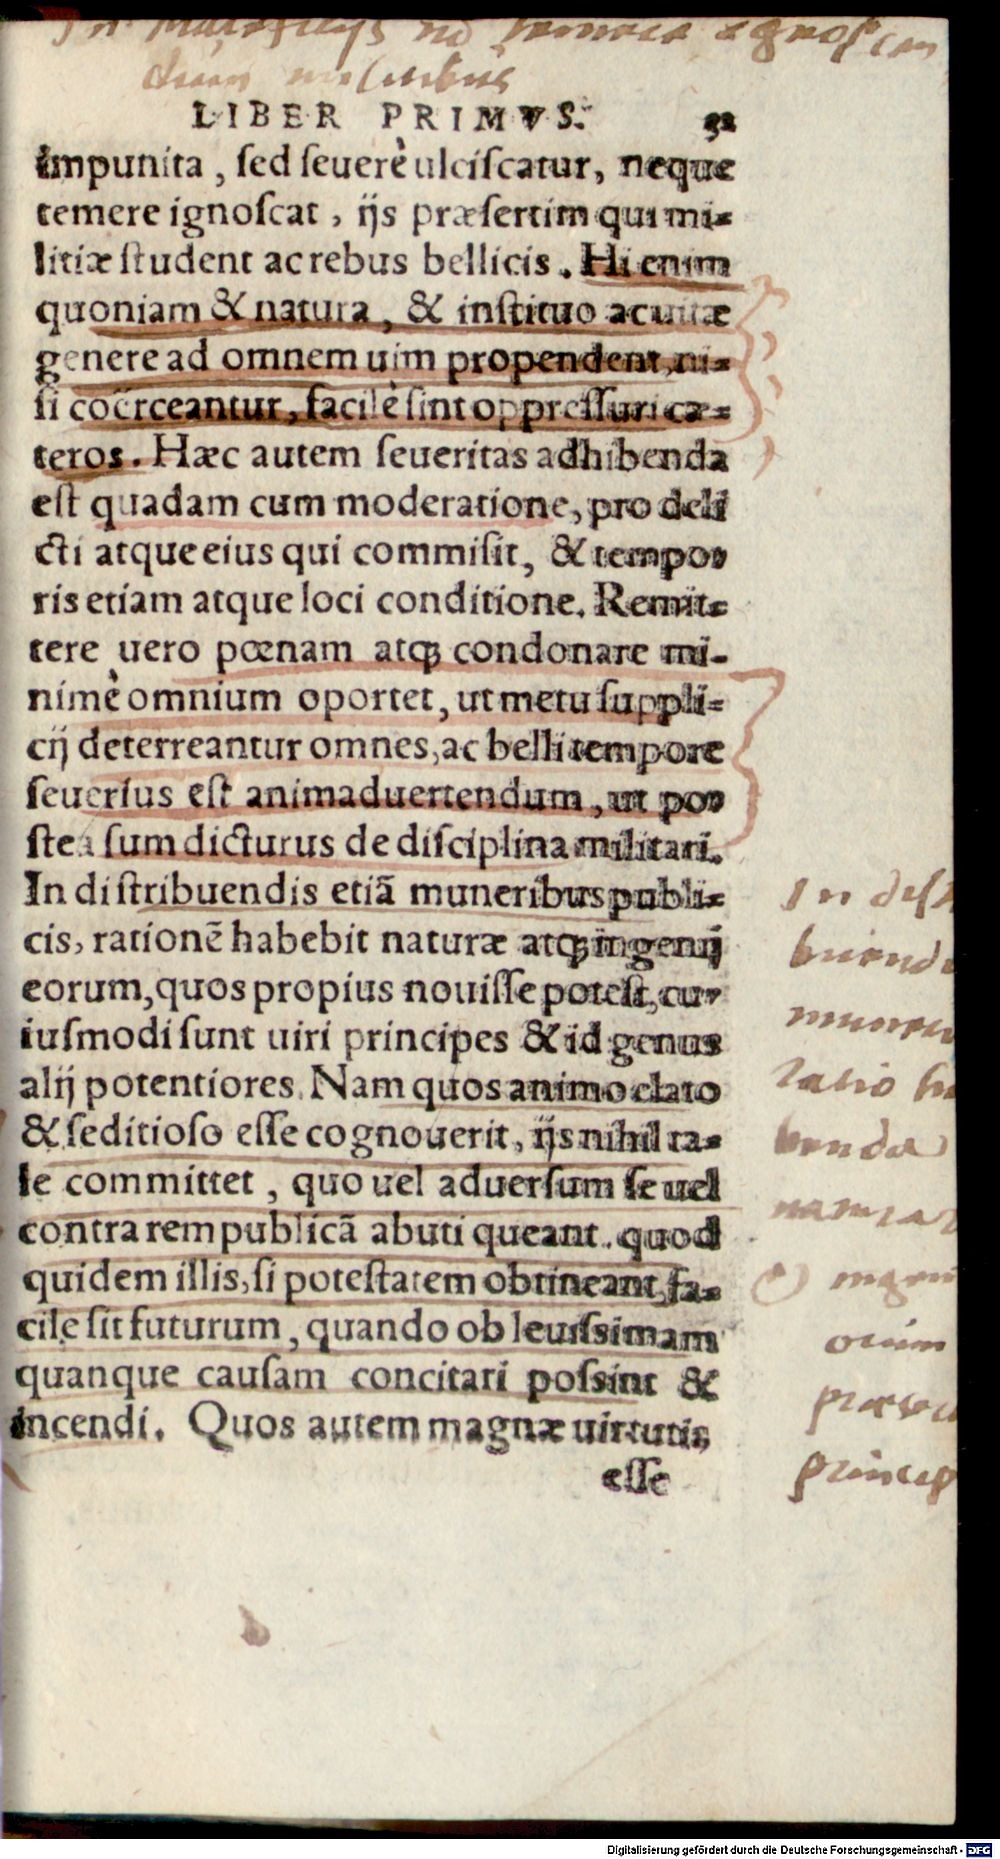 In Maleficijs no temere ignoscen
dum militibus
LIBER PRIMVS. 32
impunita, sed seuerè ulciscatur, neque
temere ignoscat, ijs præsertim qui mi-
litiæ student ac rebus bellicis. Hi enim
quoniam & natura, & instituo ac uitæ
genere ad omnem uim propendent, ni-
si coërceantur, facilè sint oppressuri cæ-
teros. Hæc autem seueritas adhibenda
est quadam cum moderatione, pro deli
cti atque eius qui commisit, & tempo-
ris etiam atque loci conditione. Remit-
tere uero pœnam atq; condonare mi-
nimè omnium oportet, ut metu suppli-
cij deterreantur omnes, ac belli tempore
seuerius est animaduertendum, ut po-
stea sum dicturus de disciplina militari.
In distribuendis etiā muneribus publi-
cis, rationē habebit naturæ atq; ingenij
eorum, quos propius nouisse potest, cu-
iusmodi sunt uiri principes & id genus
alij potentiores. Nam quos animo elato
& seditioso esse cognouerit, ijs nihil ta-
le committet, quo uel aduersum se uel
contra rempublicā abuti queant. quod
quidem illis, si potestatem obtineant, fa-
cile sit futurum, quando ob leuissimam
quanque causam concitari possint &
incendi. Quos autem magnæ uirtutis
esse
In dist
buendi
muneri
ratio ha
benda
naturæ
& ingeni
orum
præser
princip
Digitalisierung gefördert durch die Deutsche Forschungsgemeinschaft - DFG